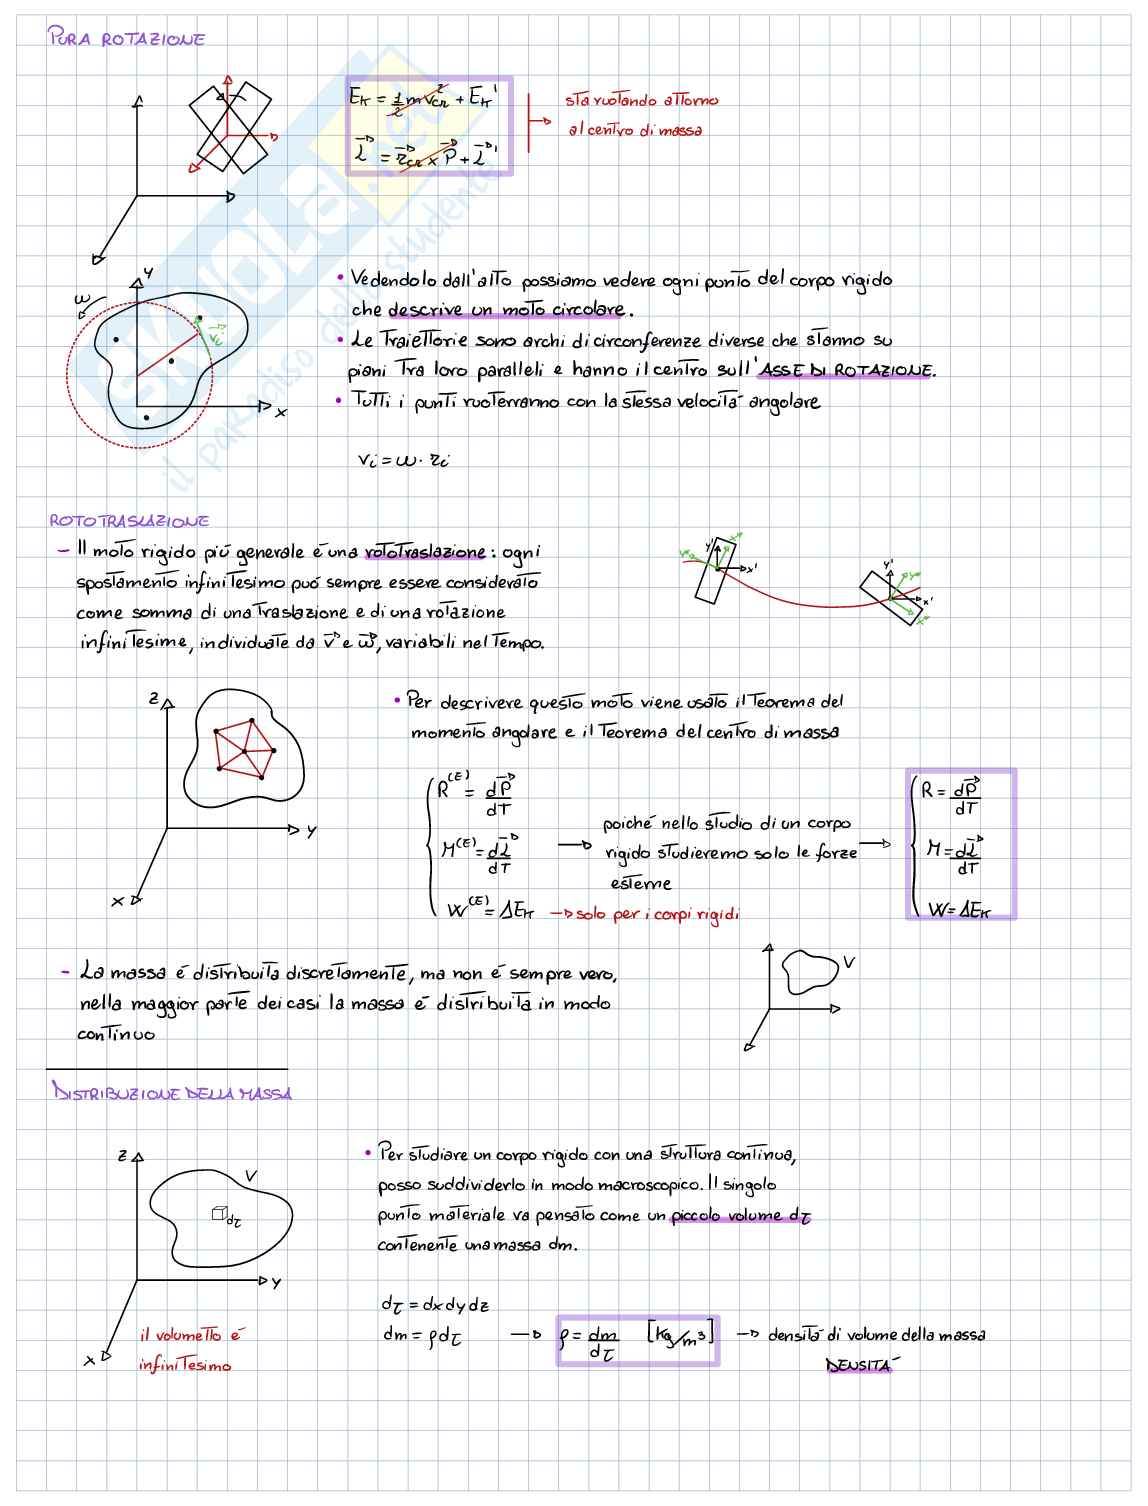 PURA ROTAZIONE
E_K = 1/2 m v_CM² + E_K'
L = r_CM × P + L'
sta ruotando attorno
al centro di massa
y
ω
v_i
x
• Vedendolo dall'alto possiamo vedere ogni punto del corpo rigido
che descrive un moto circolare.
• Le traiettorie sono archi di circonferenze diverse che stanno su
piani tra loro paralleli e hanno il centro sull'ASSE DI ROTAZIONE.
• Tutti i punti ruoterranno con la stessa velocità angolare
v_i = ω · r_i
SKUOLA.net
il paradiso dello studente
ROTOTRASLAZIONE
– Il moto rigido più generale è una rototraslazione: ogni
spostamento infinitesimo può sempre essere considerato
come somma di una traslazione e di una rotazione
infinitesime, individuate da v e ω, variabili nel tempo.
y' x' y'' x''
y' x' y'' x''
z
y
x
• Per descrivere questo moto viene usato il teorema del
momento angolare e il teorema del centro di massa
R^(E) = dP/dT
M^(E) = dL/dT
W^(E) = ΔE_K → solo per i corpi rigidi
→ poiché nello studio di un corpo
rigido studieremo solo le forze →
esterne
R = dP/dT
M = dL/dT
W = ΔE_K
– La massa è distribuita discretamente, ma non è sempre vero,
nella maggior parte dei casi la massa è distribuita in modo
continuo
V
DISTRIBUZIONE DELLA MASSA
z
V
dτ
y
x
il volumetto è
infinitesimo
• Per studiare un corpo rigido con una struttura continua,
posso suddividerlo in modo macroscopico. Il singolo
punto materiale va pensato come un piccolo volume dτ
contenente una massa dm.
dτ = dx dy dz
dm = ρdτ → ρ = dm/dτ [Kg/m³] → densità di volume della massa
DENSITÀ